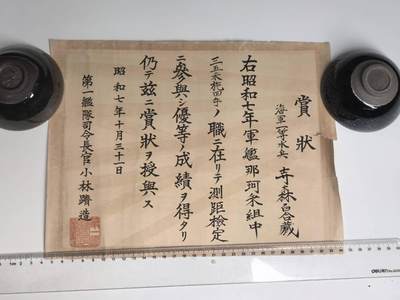 賞狀
海軍一等水兵
右昭和七年軍艦那珂乗組中
ノ職ニ在リテ測距檢定
ニ參與シ優等ノ成績ヲ得タリ
仍テ茲ニ賞狀ヲ授與ス
昭和七年十月三十一日
第一艦隊司令長官小林躋造